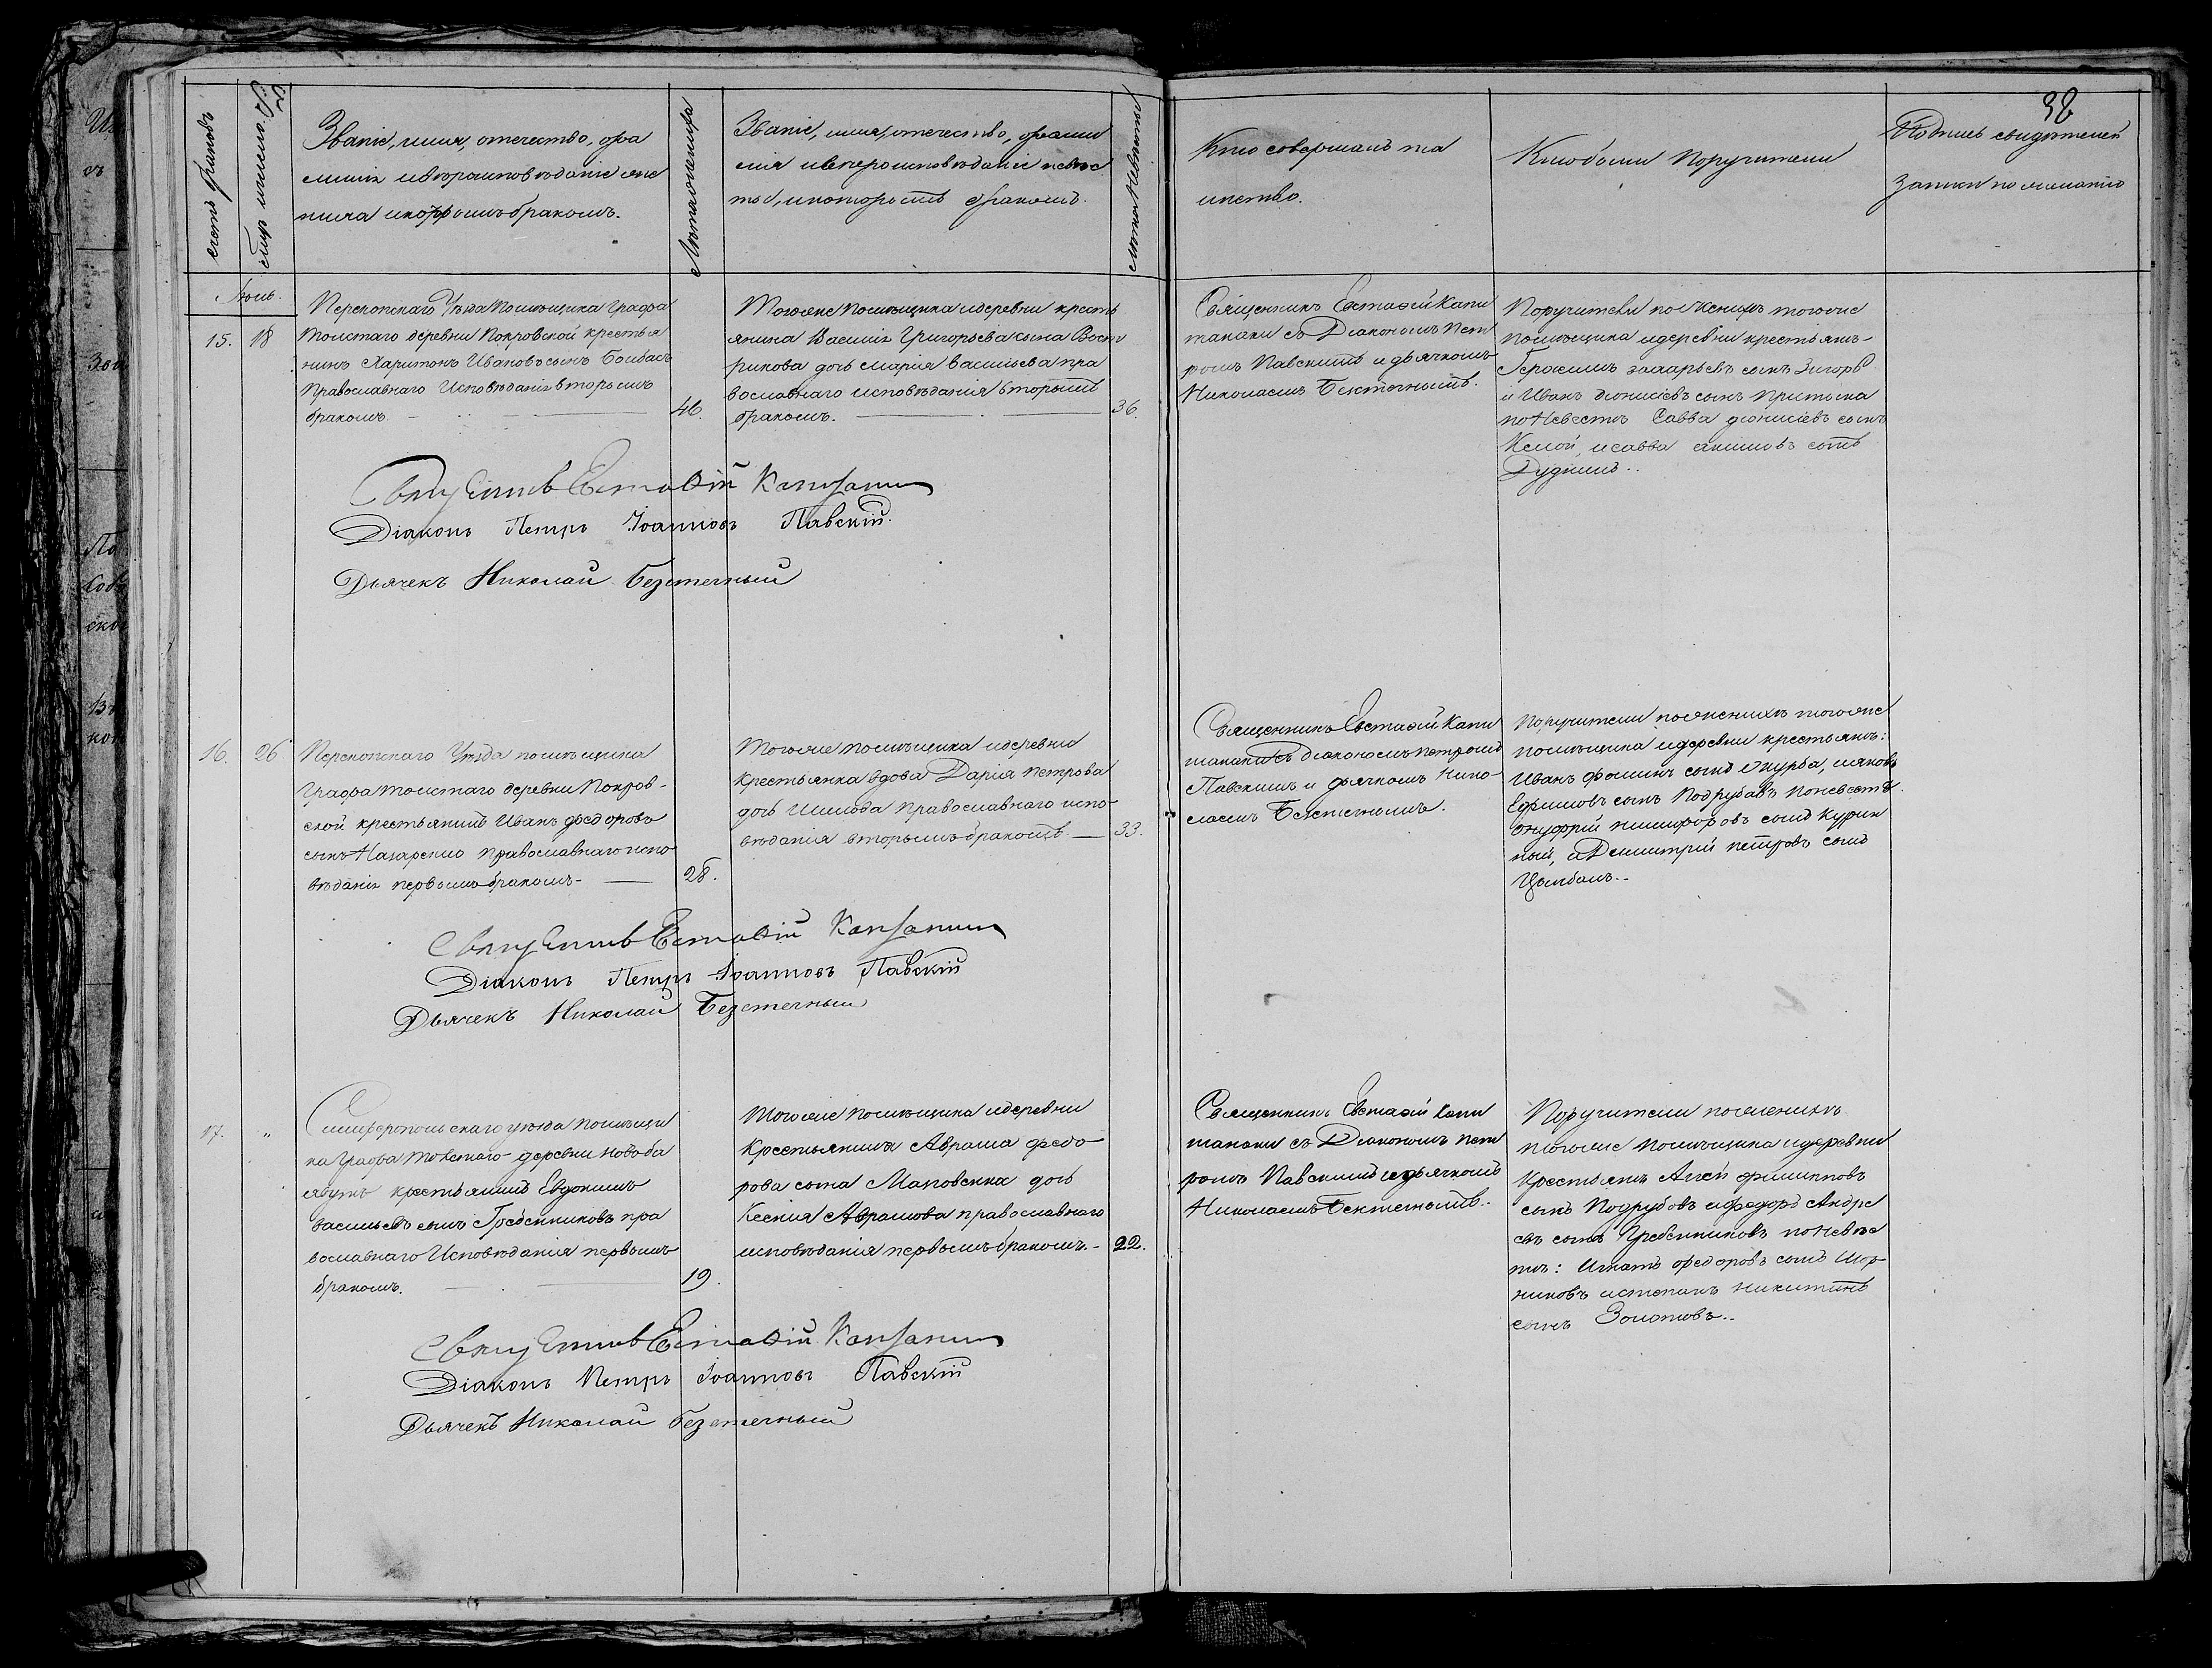 38
счетъ браковъ
Мѣс. и число.
Званіе, имя, отечество, фа
милія и вѣроисповѣданіе же
ниха и которымъ бракомъ.
Лѣта жениха
Званіе, имя, отечество, фами
лія и вѣроисповѣданіе невѣс
ты, и которымъ бракомъ.
Лѣта невѣсты
Кто совершалъ та
инство.
Кто были поручители
Подпись свидѣтелей
записи по желанію
Іюнь.
15.
18
Перекопскаго Уѣзда помѣщика Графа
Толстаго деревни Покровской крестья
нинъ Харитонъ Ивановъ сынъ
Православнаго Исповѣданія вторымъ
бракомъ.
46.
Того же помѣщика и деревни кресть
янина Василія Григорьева сына
дочь Марія Васильева пра
вославнаго исповѣданія вторымъ
бракомъ.
36.
Священникъ Евстафій Капи
танаки съ Діакономъ Пет
ромъ Павскимъ и дьячкомъ
Николаемъ Безтечнымъ.
Поручители по Женихѣ того же
помѣщика и деревни крестьянъ-
Герасимъ Захарьевъ сынъ
и Иванъ Діонисіевъ сынъ Притыка
по Невестѣ Савва Діонисіевъ сынъ
и Савва Акимовъ сынъ
Дудникъ..
Священникъ Евстафій Капитанаки
Діаконъ Петръ Іоанновъ Павскій.
Дьячекъ Николай Безтечный
16.
26.
Перекопскаго Уѣзда помѣщика
Графа Толстаго деревни Покров-
ской крестьянинъ Иванъ Федоровъ
сынъ Назаренко православнаго испо
вѣданія первымъ бракомъ-
28.
Того же помѣщика и деревни
крестьянка вдова Дарія Петрова
дочь Шилова Православнаго испо-
вѣданія вторымъ бракомъ.
33.
Священникъ Евстафій Капи
танаки съ Діакономъ Петромъ
Павскимъ и дьячкомъ Нико-
лаемъ Безтечнымъ.
Поручители по женихѣ того же
помѣщика и деревни крестьянъ:
Иванъ Фоминъ сынъ и Яковъ
Ефимовъ сынъ Подрубавъ по невестѣ
Онуфрій Никифоровъ сынъ Курин
ный, и Димитрій Петровъ сынъ
Цымбалъ..
Священникъ Евстафій Капитанаки
Діаконъ Петръ Іоанновъ Павскій
Дьячекъ Николай Безтечный
17.
"
Симферопольскаго уѣзда помѣщи
ка Графа Толстаго деревни
крестьянинъ Евдокимъ
Васильевъ сынъ Гребенниковъ пра
вославнаго Исповѣданія первымъ
бракомъ.
19.
Того же помѣщика и деревни
Крестьянина Аврама Федо
рова сына дочь
Ксенія Аврамова православнаго
исповѣданія первымъ бракомъ.-
22.
Священникъ Евстафій Капи
танаки съ Діакономъ Пет
ромъ Павскимъ и дьячкомъ
Николаемъ Безтечнымъ..
Поручители по женихѣ
того же помѣщика и деревни
крестьянъ Филипповъ
сынъ Подрубовъ и Федоръ Андре
евъ сынъ Гребенниковъ по невѣс
тѣ: Игнатъ Федоровъ сынъ
и Степанъ Никитинъ
сынъ Золотовъ..
Священникъ Евстафій Капитанаки
Діаконъ Петръ Іоанновъ Павскій
Дьячекъ Николай Безтечный